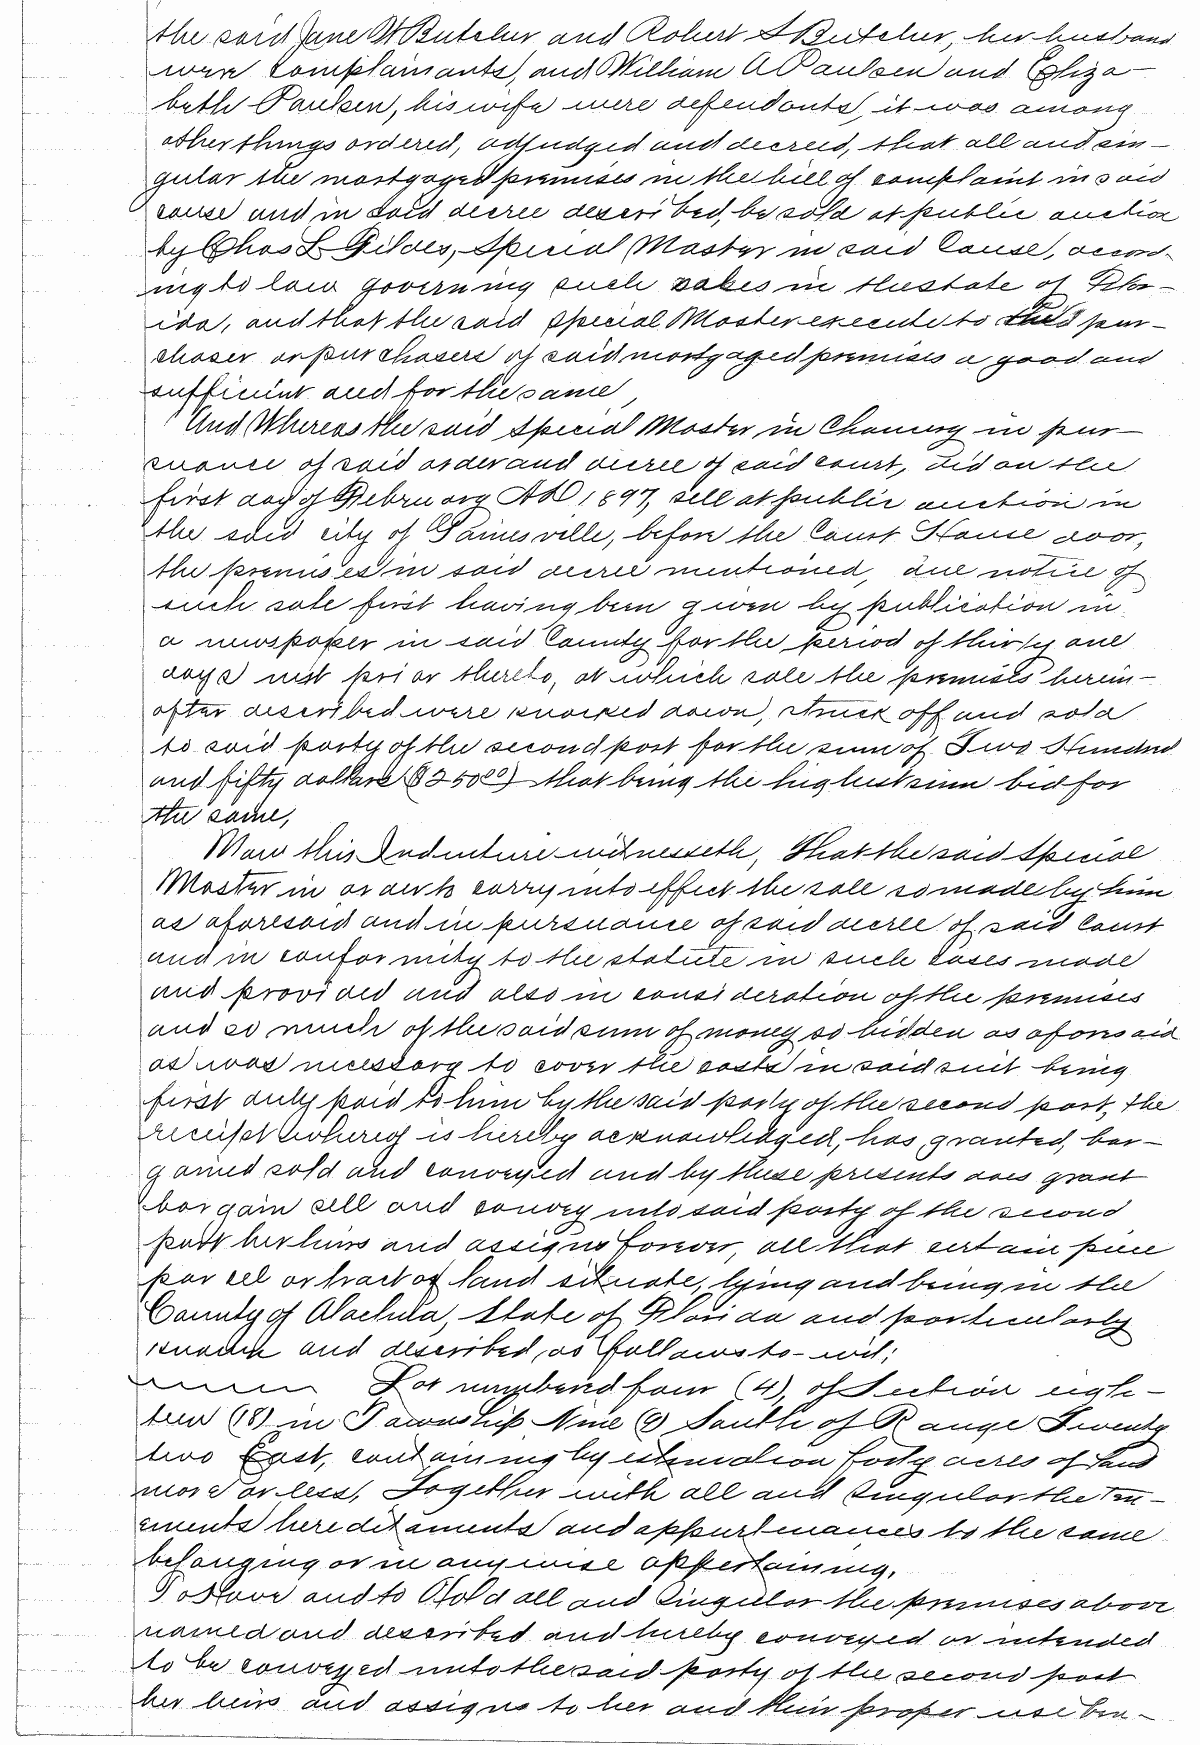 the said Jane W Butcher and Robert S Butcher, her husband
were complainants, and William A Paulsen and Eliza-
beth Paulsen, his wife were defendants, it was among
other things ordered, adjudged and decreed, that all and sin-
gular the mortgaged premises in the bill of complaint in said
cause and in said decree described, be sold at public auction
by Chas L Fildes, Special Master in said Cause, accor-
ing to law governing such sales in the state of Flor-
ida, and that the said Special Master execute to the pur-
chaser or purchasers of said mortgaged premises a good and
sufficient deed for the same,
And Whereas the said Special Master in Chancery in pur-
suance of said order and decree of said court, did on the
first day of February AD 1897, sell at public auction in
the said city of Gainesville, before the Court House door,
the premises in said decree mentioned, due notice of
such sale first having been given by publication in
a newspaper in said County for the period of thirty one
days next prior thereto, at which sale the premises herein-
after described were knocked down, struck off and sold
to said party of the second part for the sum of Two Hundred
and fifty dollars ($250 00) that being the highest sum bid for
the same,
Now this Indenture witnesseth, That the said Special
Master in order to carry into effect the sale so made by him
as aforesaid and in pursuance of said decree of said Court
and in conformity to the statute in such cases made
and provided and also in consideration of the premises
and so much of the said sum of money so bidden as aforesaid
as was necessary to cover the costs in said suit being
first duly paid to him by the said party of the second part, the
receipt whereof is hereby acknowledged, has, granted, bar-
gained sold and conveyed and by these presents does grant
bargain sell and convey unto said party of the second
part her heirs and assigns forever, all that certain piece
parcel or tract of land situate, lying and being in the
County of Alachua, State of Florida and particularly
known and described, as follows to-wit;
Lot numbered four (4), of Section eigh-
teen (18) in Township Nine (9) South of Range Twenty
two East, containing by estimation forty acres of land
more or less, Together with all and singular the ten-
ements hereditaments and appurtenances to the same
belonging or in anywise appertaining.
To Have and to Hold all and singular the premises above
named and described and hereby conveyed or intended
to be conveyed unto the said party of the second part
her heirs and assigns to her and their proper use ben-